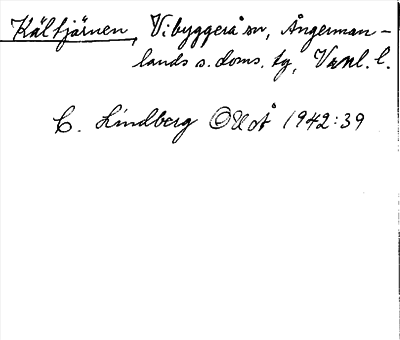 Kältjärnen, Vibyggerå sn, Ångerman-
lands s. doms. tg, Vnl. l.
C. Lindberg OUoÅ 1942:39